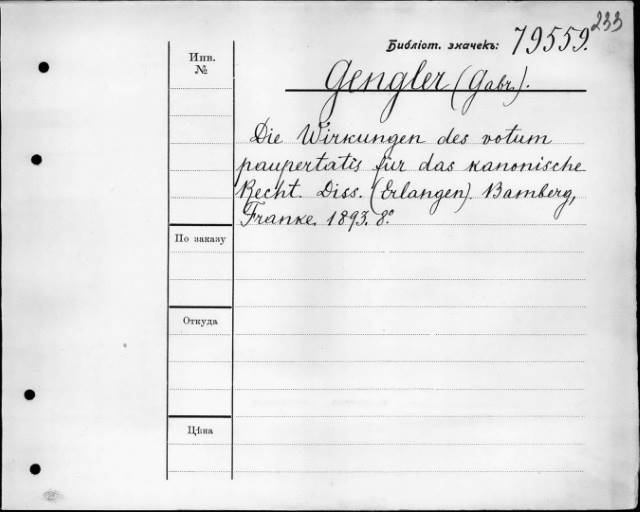 233
Библіот. значекъ: 79559.
Инв.
№
Gengler (Gabr.).
Die Wirkungen des votum
paupertatis für das kanonische
Recht. Diss. (Erlangen). Bamberg,
Franke, 1893. 8º
По заказу
Откуда
Цѣна